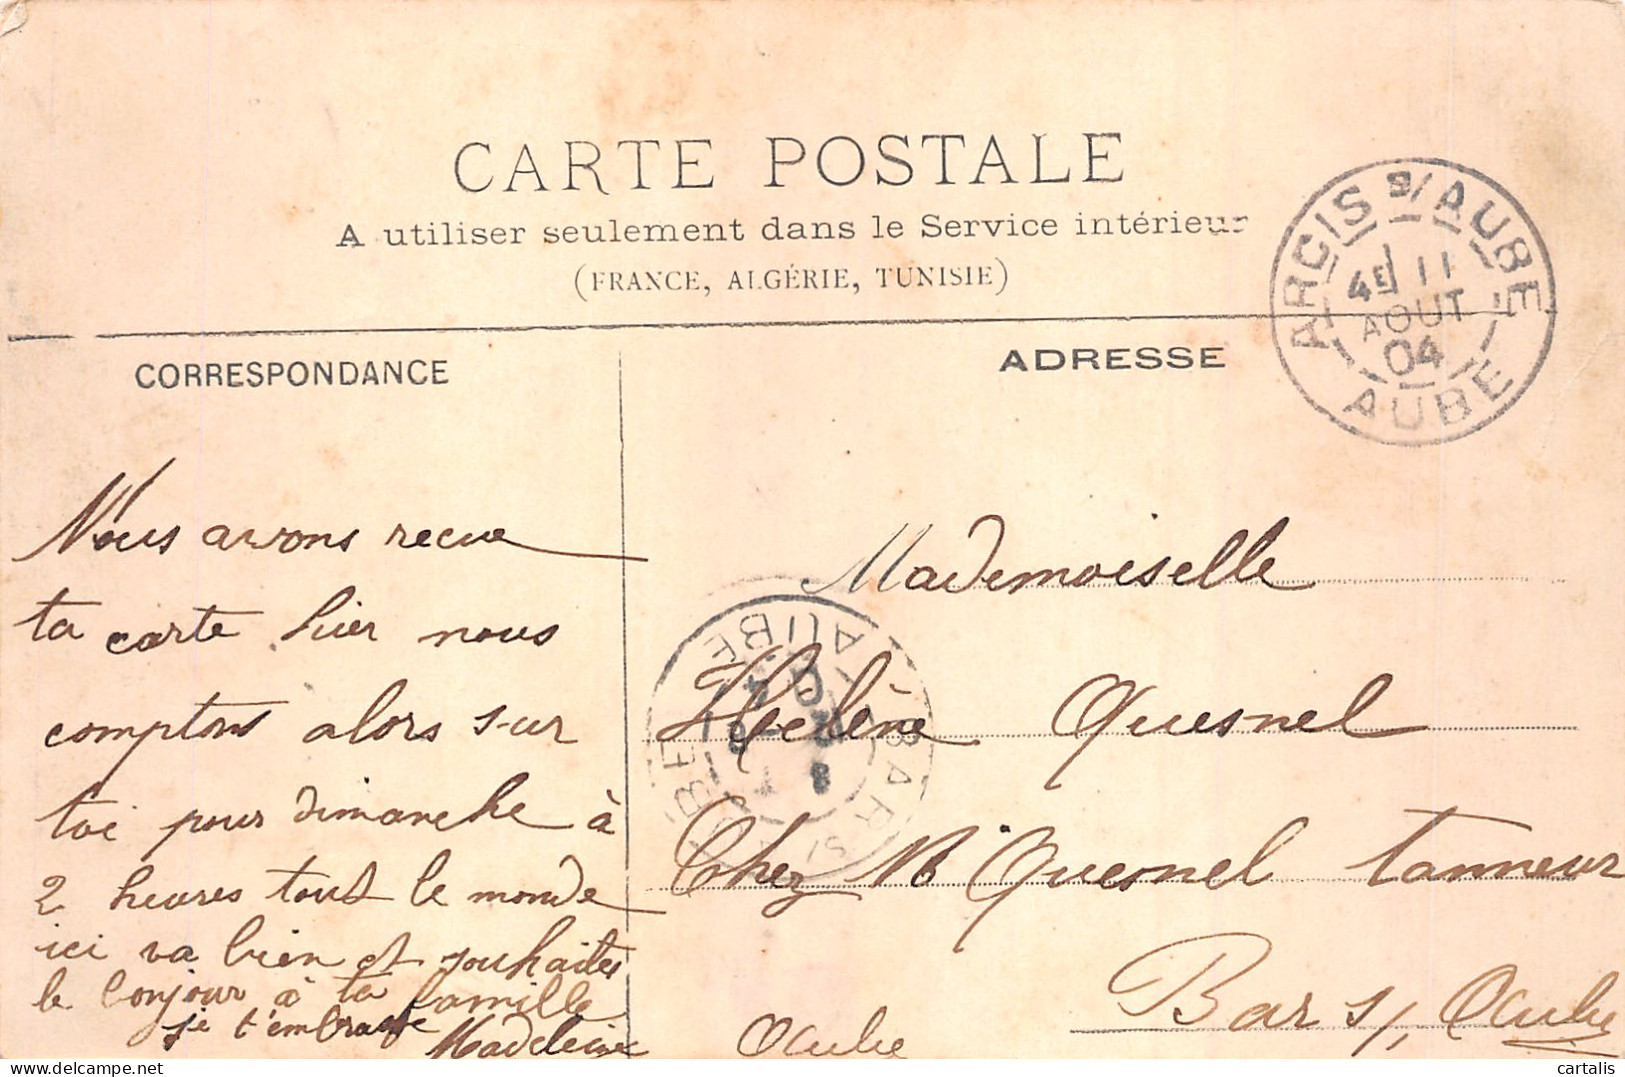 CARTE POSTALE
A utiliser seulement dans le Service intérieur
(FRANCE, ALGÉRIE, TUNISIE)
ARCIS S/AUBE
4E 11
AOUT
04
AUBE
CORRESPONDANCE
Nous avons recue
ta carte hier nous
comptons alors sur
toi pour dimanche à
2 heures tout le monde
ici va bien et souhaites
le bonjour à ta famille
je t'embrasse
Madeleine
ADRESSE
Mademoiselle
Helène Quesnel
Chez M Quesnel tanneur
Bar s/ Aube
Aube
BAR S/ AUBE
AUBE
delcampe.net
cartalis